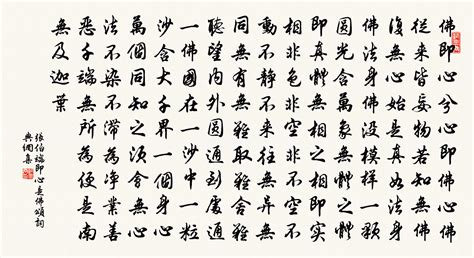 佛即心兮心即佛心佛
從来皆妄物若知無佛
復無心始是真如法身
佛法身佛没模樣一顆
圓光含萬象無體之體
即真體無相之相即實
相非色非空非不空不
動不静不来往無異無
同無有無難取難捨難
聽望内外圓通到處通
一佛國在一沙中一粒
沙含大千界一個身心
萬個同知之須會無心
法不染不滯為淨業善
惡千端無所為便是南
無及迦葉
張伯端即心是佛頌詞
典網集